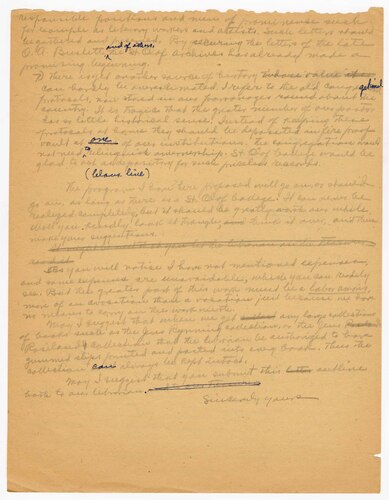 responsible positions and men of prominence such
for example as literary workers and artists. Such letters should
be collected and preserved. By securing the letters of the late
O. G. Buslett and of others, the Archives has already made a
promising beginning.
7) There is yet another source of history whose value
can hardly be overestimated. I refer to the old congregational
protocols, now stored in our parsonages scattered about the
country. It is tragic that the greater number of our pastors
have so little historical sense. Instead of keeping these
protocols at home they should be deposited in fire proof
vault at one of our institutions. The congregations would
not need to relinquish ownership. St. Olaf College would be
glad to act as depository for such priceless records.
(leave line)
The program I have here proposed will go on or should
go on, as long as there is a St. Olaf College. It can never be
realized completely, but it should be greatly worth any while.
Will you, kindly, look it through, think it over, and then
make your suggestions.
As you will notice I have not mentioned expenses,
and some expenses are unavoidable, which you can readily
see. But the greater part of this work must be a labor amoris,
more of an avocation than a vocation just because we have
no means to carry on the work with.
May I suggest that where we get any large collections
of books such as the Jens Rynning collection, or the Jens
Roseland collection that the librarian be authorized to have
gummed slips printed and pasted into every book. Thus the
collection can always be kept intact.
May I suggest that you submit this outline
back to our librarian.
Sincerely yours